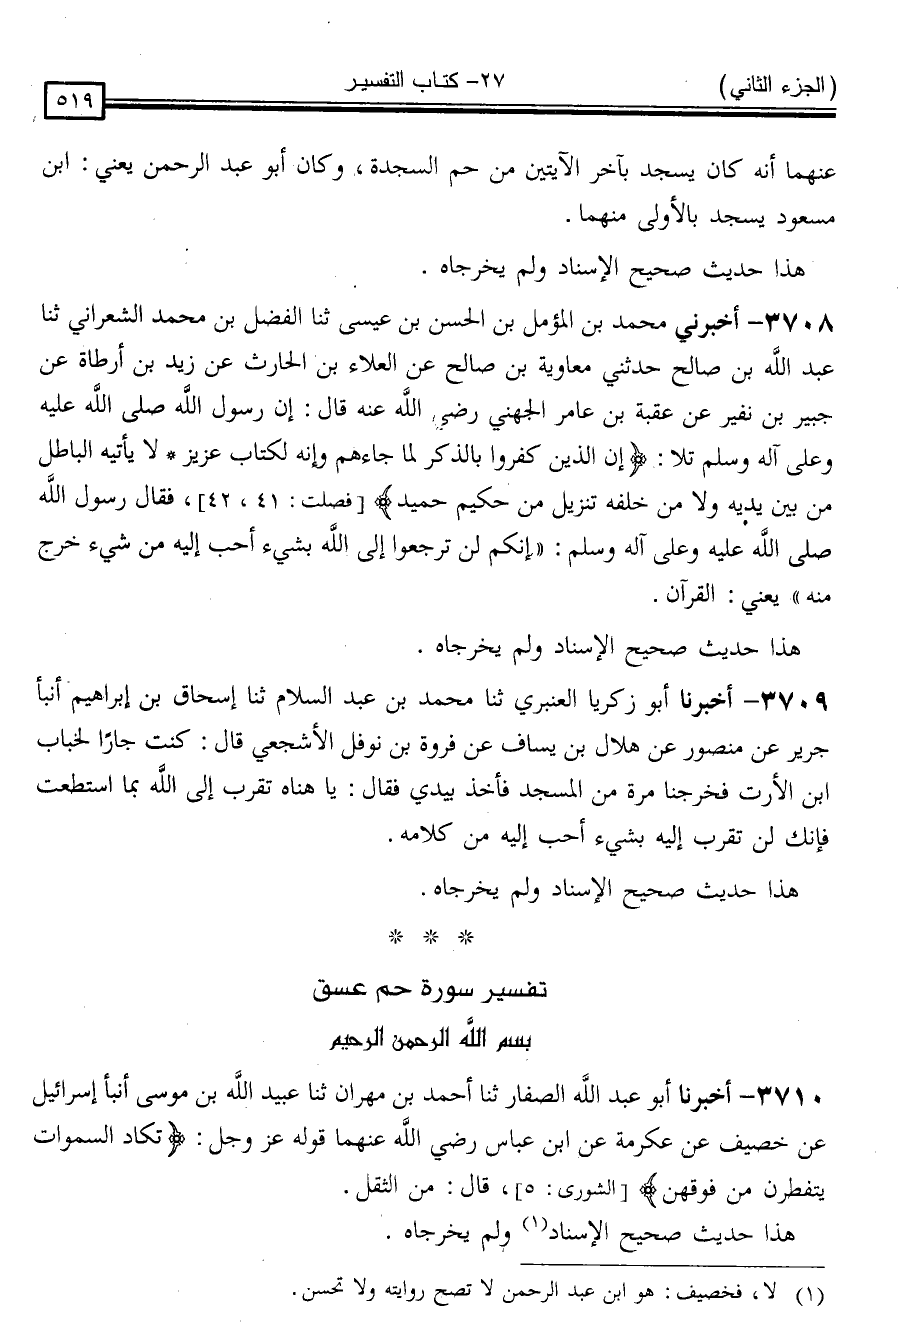 (الجزء الثاني)
٢٧- كتاب التفسير
٥١٩
عنهما أنه كان يسجد بآخر الآيتين من حم السجدة، وكان أبو عبد الرحمن يعني: ابن
مسعود يسجد بالأولى منهما.
هذا حديث صحيح الإسناد ولم يخرجاه.
٣٧٠٨- أخبرني محمد بن المؤمل بن الحسن بن عيسى ثنا الفضل بن محمد الشعراني ثنا
عبد اللَّه بن صالح حدثني معاوية بن صالح عن العلاء بن الحارث عن زيد بن أرطاة عن
جبير بن نفير عن عقبة بن عامر الجهني رضي اللَّه عنه قال: إن رسول اللَّه صلى اللَّه عليه
وعلى آله وسلم تلا: ﴿إن الذين كفروا بالذكر لما جاءهم وإنه لكتاب عزيز * لا يأتيه الباطل
من بين يديه ولا من خلفه تنزيل من حكيم حميد﴾ [فصلت: ٤١ ، ٤٢]، فقال رسول اللَّه
صلى اللَّه عليه وعلى آله وسلم: «إنكم لن ترجعوا إلى اللَّه بشيء أحب إليه من شيء خرج
منه» يعني: القرآن.
هذا حديث صحيح الإسناد ولم يخرجاه.
٣٧٠٩- أخبرنا أبو زكريا العنبري ثنا محمد بن عبد السلام ثنا إسحاق بن إبراهيم أنبأ
جرير عن منصور عن هلال بن يساف عن فروة بن نوفل الأشجعي قال: كنت جارًا لخباب
ابن الأرت فخرجنا مرة من المسجد فأخذ بيدي فقال: يا هناه تقرب إلى اللَّه بما استطعت
فإنك لن تقرب إليه بشيء أحب إليه من كلامه.
هذا حديث صحيح الإسناد ولم يخرجاه.
* * *
تفسير سورة حم عسق
بسم اللَّه الرحمن الرحيم
٣٧١٠- أخبرنا أبو عبد اللَّه الصفار ثنا أحمد بن مهران ثنا عبيد اللَّه بن موسى أنبأ إسرائيل
عن خصيف عن عكرمة عن ابن عباس رضي اللَّه عنهما قوله عز وجل: ﴿تكاد السموات
يتفطرن من فوقهن﴾ [الشورى: ٥]، قال: من الثقل.
هذا حديث صحيح الإسناد(١) ولم يخرجاه.
(١) لا، فخصيف: هو ابن عبد الرحمن لا تصح روايته ولا تحسن.